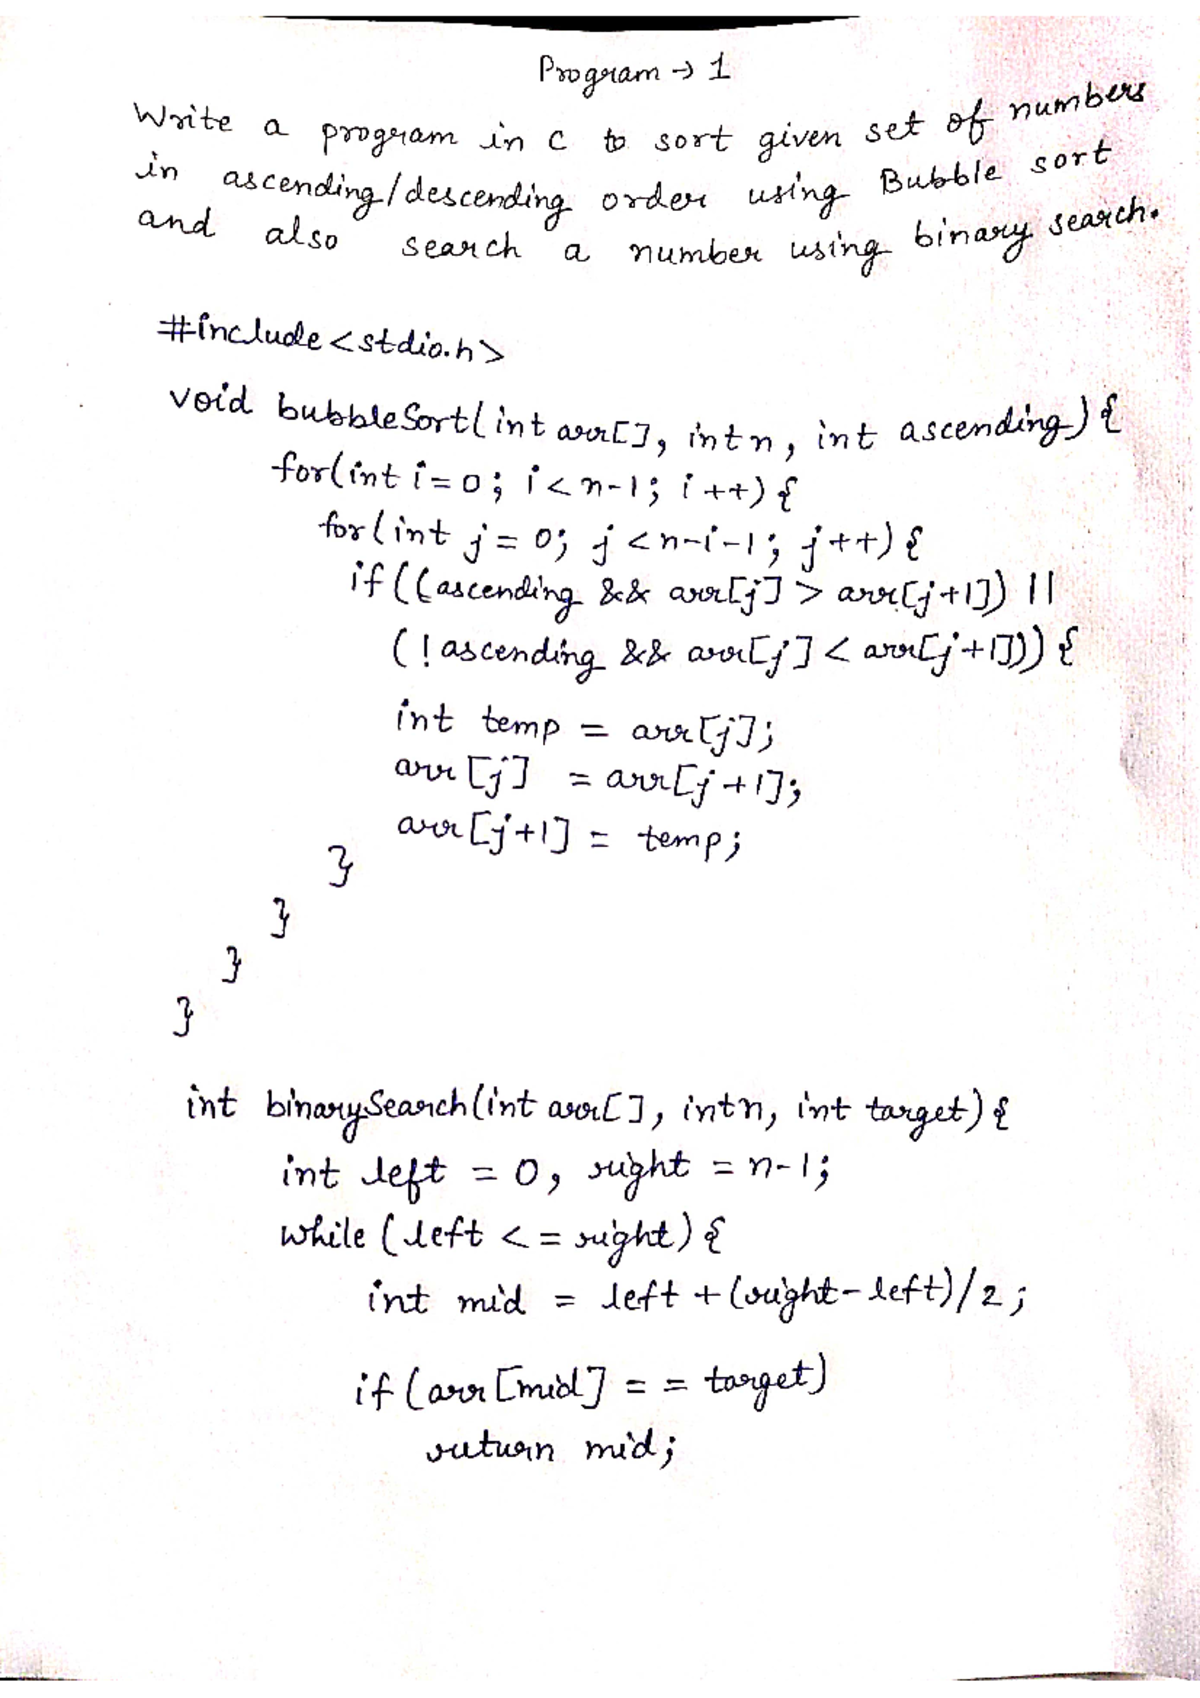 Program → 1
Write a program in C to sort given set of numbers
in ascending/descending order using Bubble sort
and also search a number using binary search.
#include<stdio.h>
void bubbleSort(int arr[], int n, int ascending){
for(int i=0; i<n-1; i++){
for(int j=0; j<n-i-1; j++){
if((ascending && arr[j] > arr[j+1]) ||
(!ascending && arr[j] < arr[j+1])){
int temp = arr[j];
arr[j] = arr[j+1];
arr[j+1] = temp;
}
}
}
}
int binarySearch(int arr[], int n, int target){
int left = 0, right = n-1;
while (left <= right){
int mid = left + (right-left)/2;
if(arr[mid] == target)
return mid;